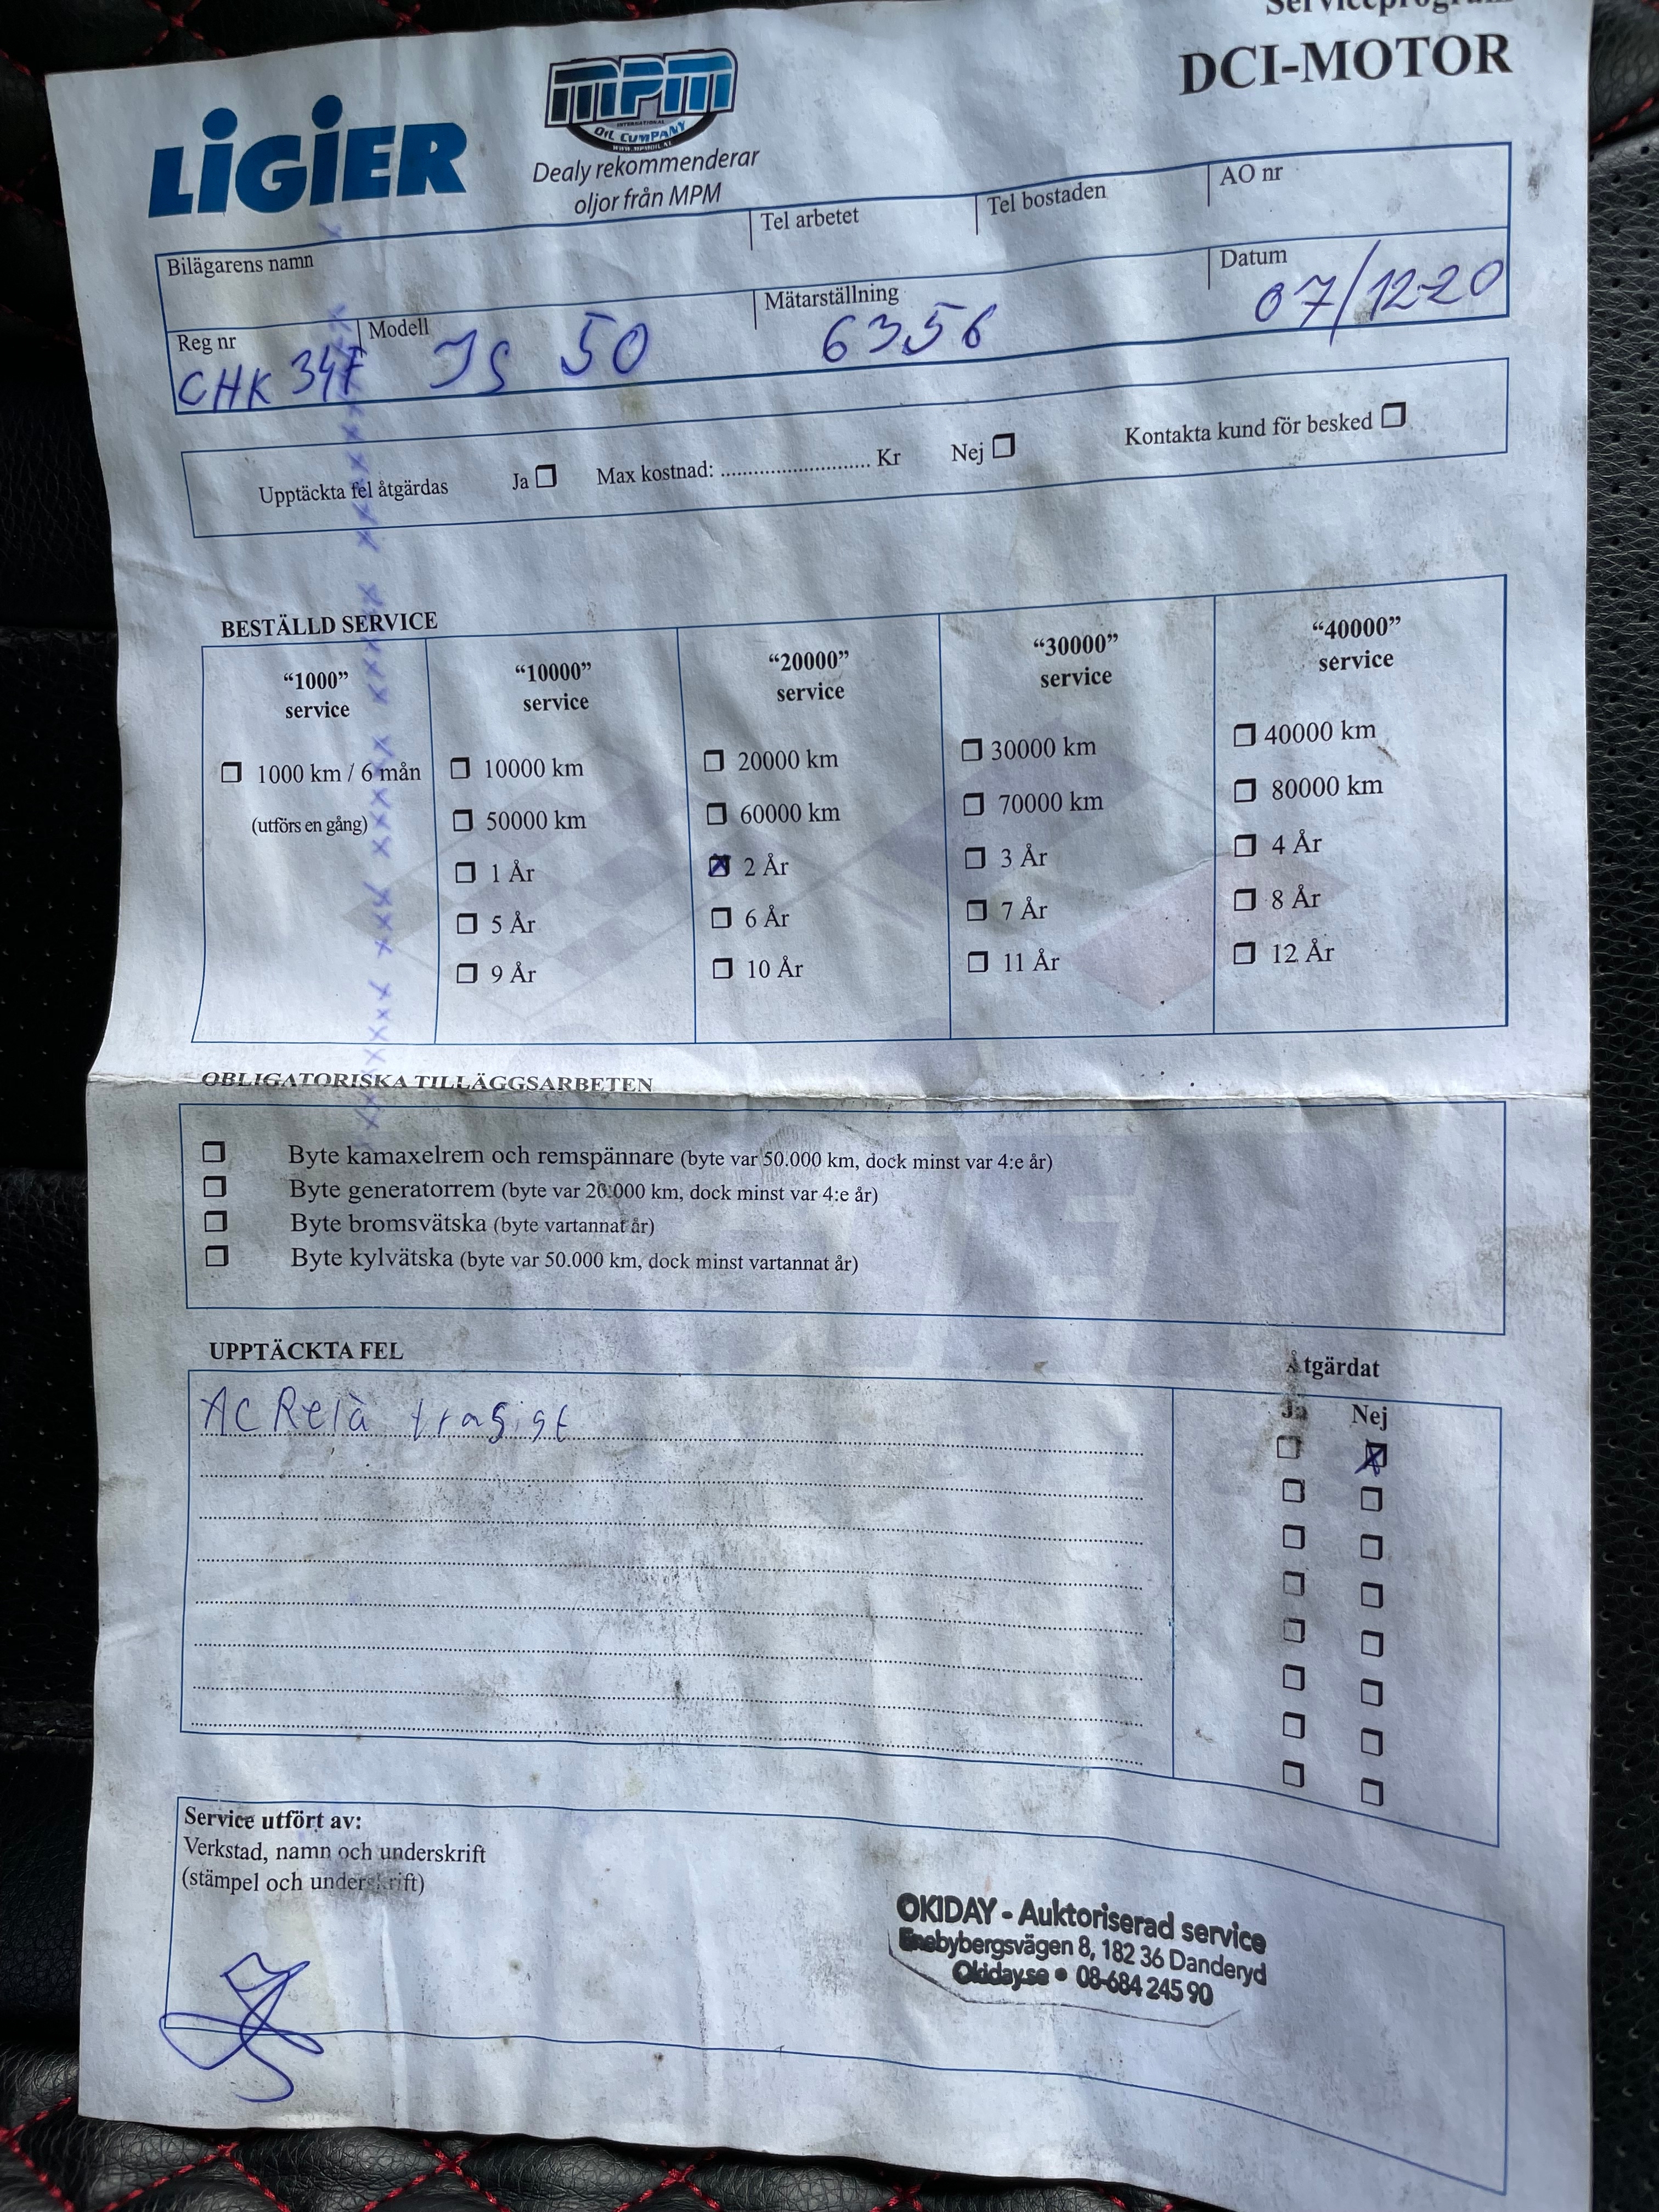 DCI-MOTOR
LIGIER
MPM
INTERNATIONAL
OIL COMPANY
Dealy rekommenderar
oljor från MPM
Bilägarens namn
Tel arbetet
Tel bostaden
AO nr
Reg nr
Modell
Mätarställning
Datum
CHK 347
JS 50
6356
07/12-20
Upptäckta fel åtgärdas Ja Max kostnad: ............................ Kr Nej Kontakta kund för besked
BESTÄLLD SERVICE
“1000”
service
1000 km / 6 mån
(utförs en gång)
“10000”
service
10000 km
50000 km
1 År
5 År
9 År
“20000”
service
20000 km
60000 km
2 År
6 År
10 År
“30000”
service
30000 km
70000 km
3 År
7 År
11 År
“40000”
service
40000 km
80000 km
4 År
8 År
12 År
OBLIGATORISKA TILLÄGGSARBETEN
Byte kamaxelrem och remspännare (byte var 50.000 km, dock minst var 4:e år)
Byte generatorrem (byte var 20.000 km, dock minst var 4:e år)
Byte bromsvätska (byte vartannat år)
Byte kylvätska (byte var 50.000 km, dock minst vartannat år)
UPPTÄCKTA FEL
Åtgärdat
Ja Nej
AC Relä
Service utfört av:
Verkstad, namn och underskrift
(stämpel och underskrift)
OKIDAY - Auktoriserad service
Enebybergsvägen 8, 182 36 Danderyd
Okiday.se • 08-684 245 90